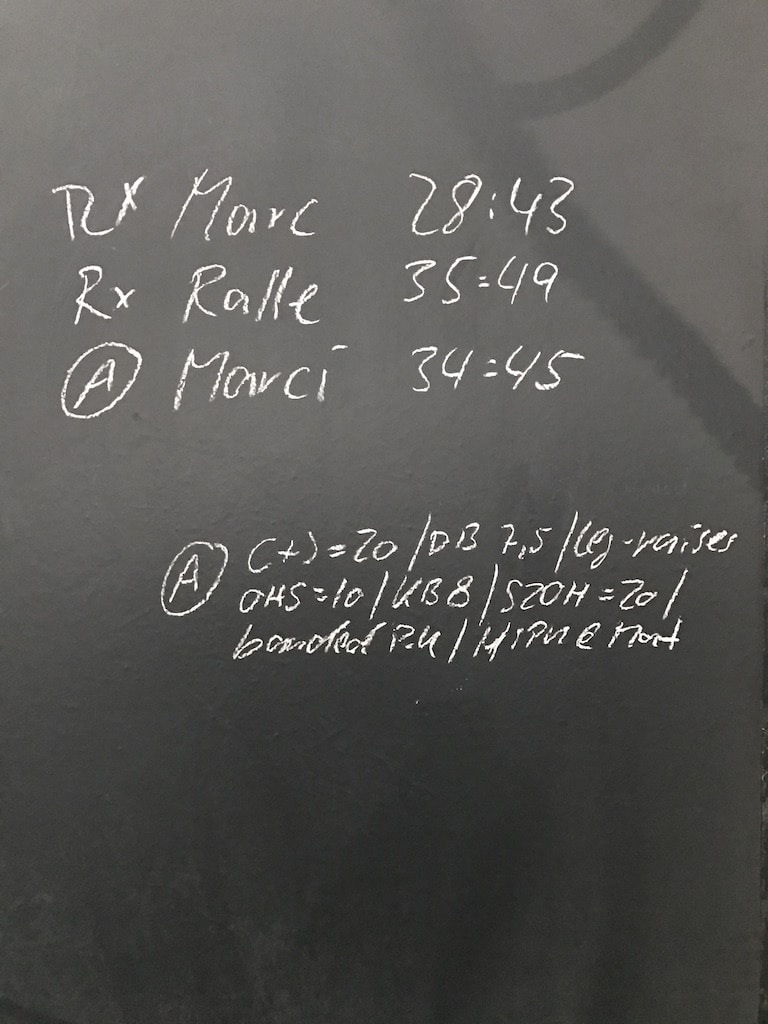 Rx Marc 28:43
Rx Ralle 35=49
A Marci 34=45
A C+J=20 / DB 7,5 / leg-raises
OHS=10 / KB8 / S2OH=20 /
banded P.U / HSPU @ Mat